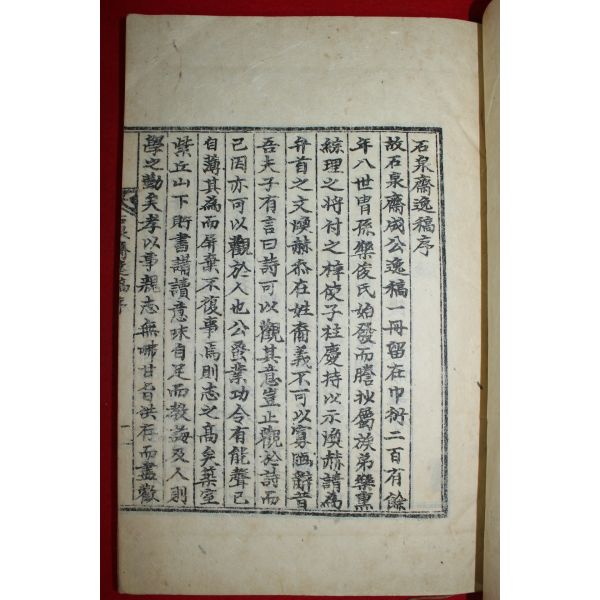 石泉齋逸稿序
故石泉齋成公逸稿一冊留在巾衍二百有餘
年八世冑孫樂俊氏始發而謄抄屬族弟樂熏
綜理之將付之梓使子柱慶持以示煥赫請為
弁首之文煥赫忝在姓裔義不可以寡陋辭昔
吾夫子有言曰詩可以觀其意豈止觀於詩而
已因亦可以觀於人也公蚤業功令有能聲已
自薄其為而屏棄不復事焉則志之高矣築室
紫丘山下貯書講讀意味自足而教誨及人則
學之勤矣孝以事親志無咈甘旨洪存而盡歡
石泉齋逸稿序
一